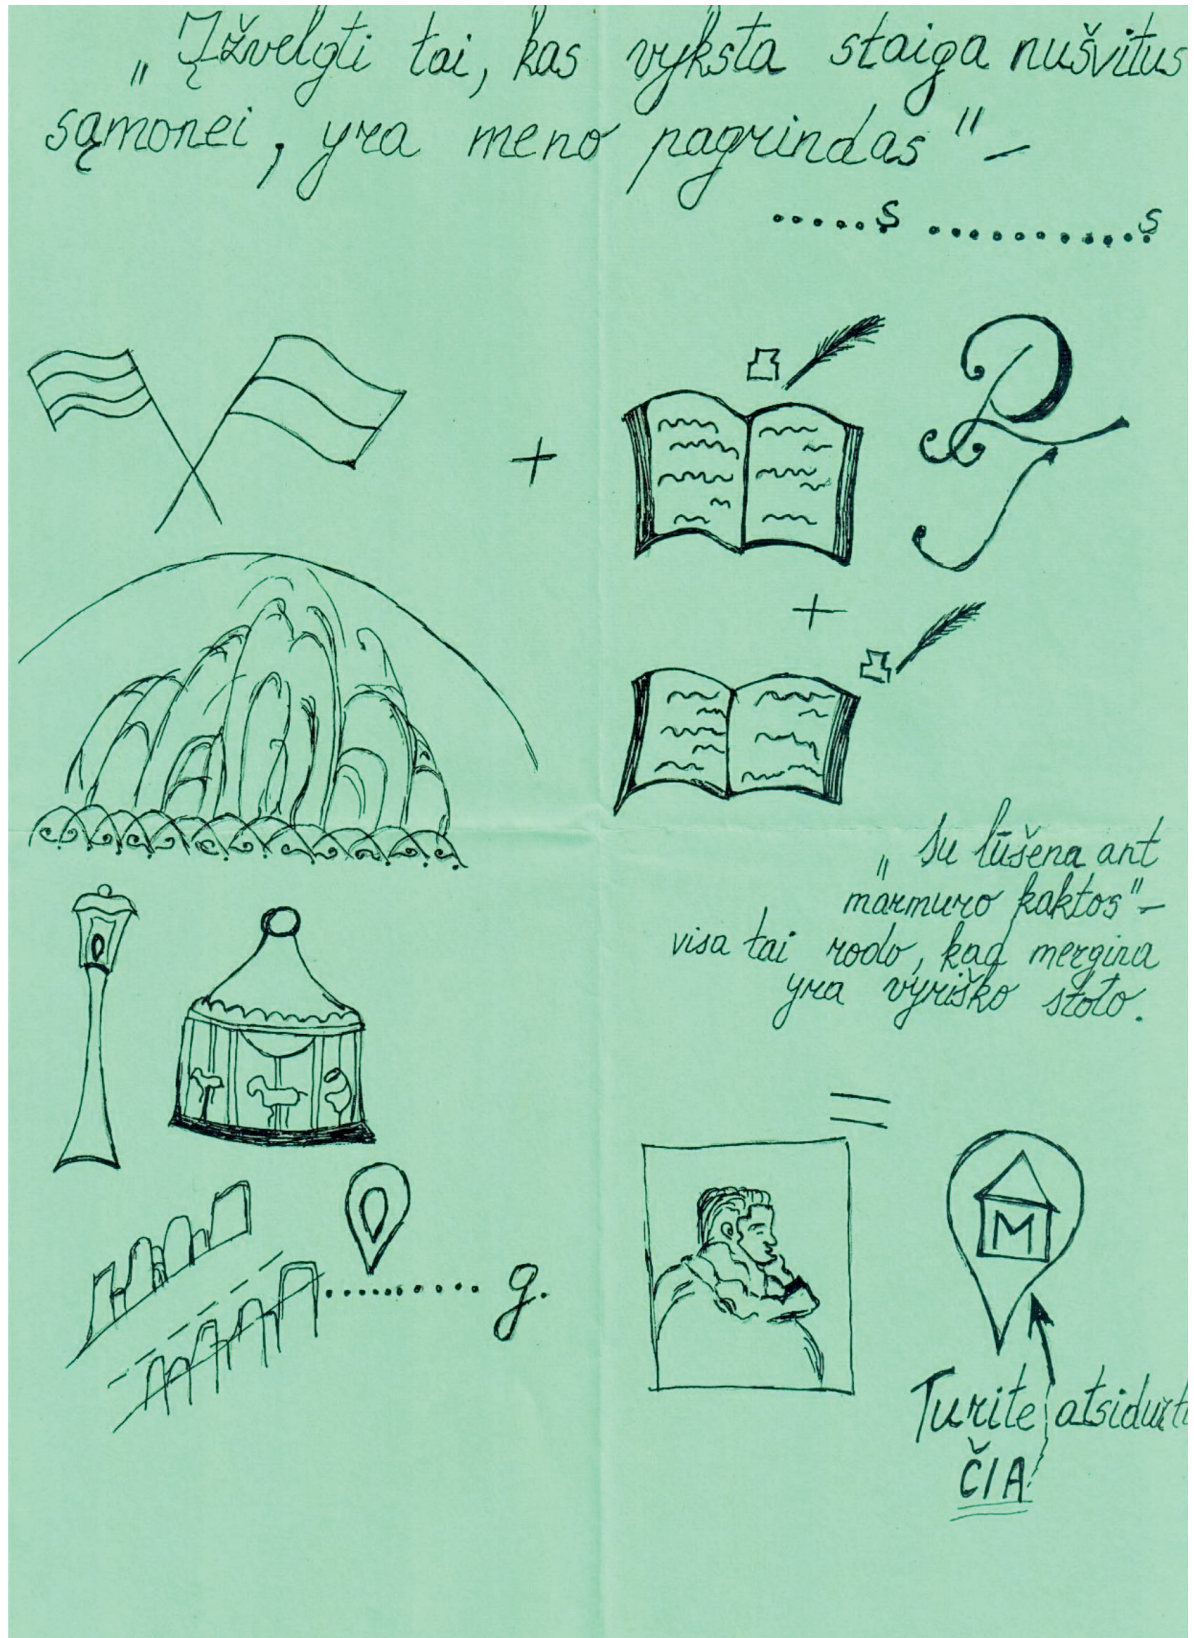 „Įžvelgti tai, kas vyksta staiga nušvitus
sąmonei, yra meno pagrindas" –
......s ...........s
+
P
+
„Su lūšena ant
marmuro kaktos" –
visa tai rodo, kad mergina
yra vyriško stoto.
=
M
......... g.
Turite atsidurti
ČIA